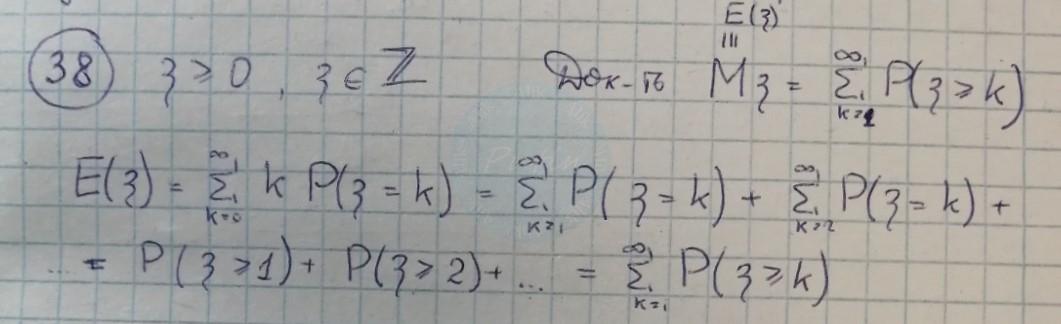 E(ξ)
(38) ξ ≥ 0 , ξ ∈ ℤ Док-ть Mξ = ∑_{k=1}^{∞} P(ξ ≥ k)
E(ξ) = ∑_{k=0}^{∞} k P(ξ = k) = ∑_{k=1}^{∞} P(ξ = k) + ∑_{k=2}^{∞} P(ξ = k) +
... = P(ξ ≥ 1) + P(ξ ≥ 2) + ... = ∑_{k=1}^{∞} P(ξ ≥ k)